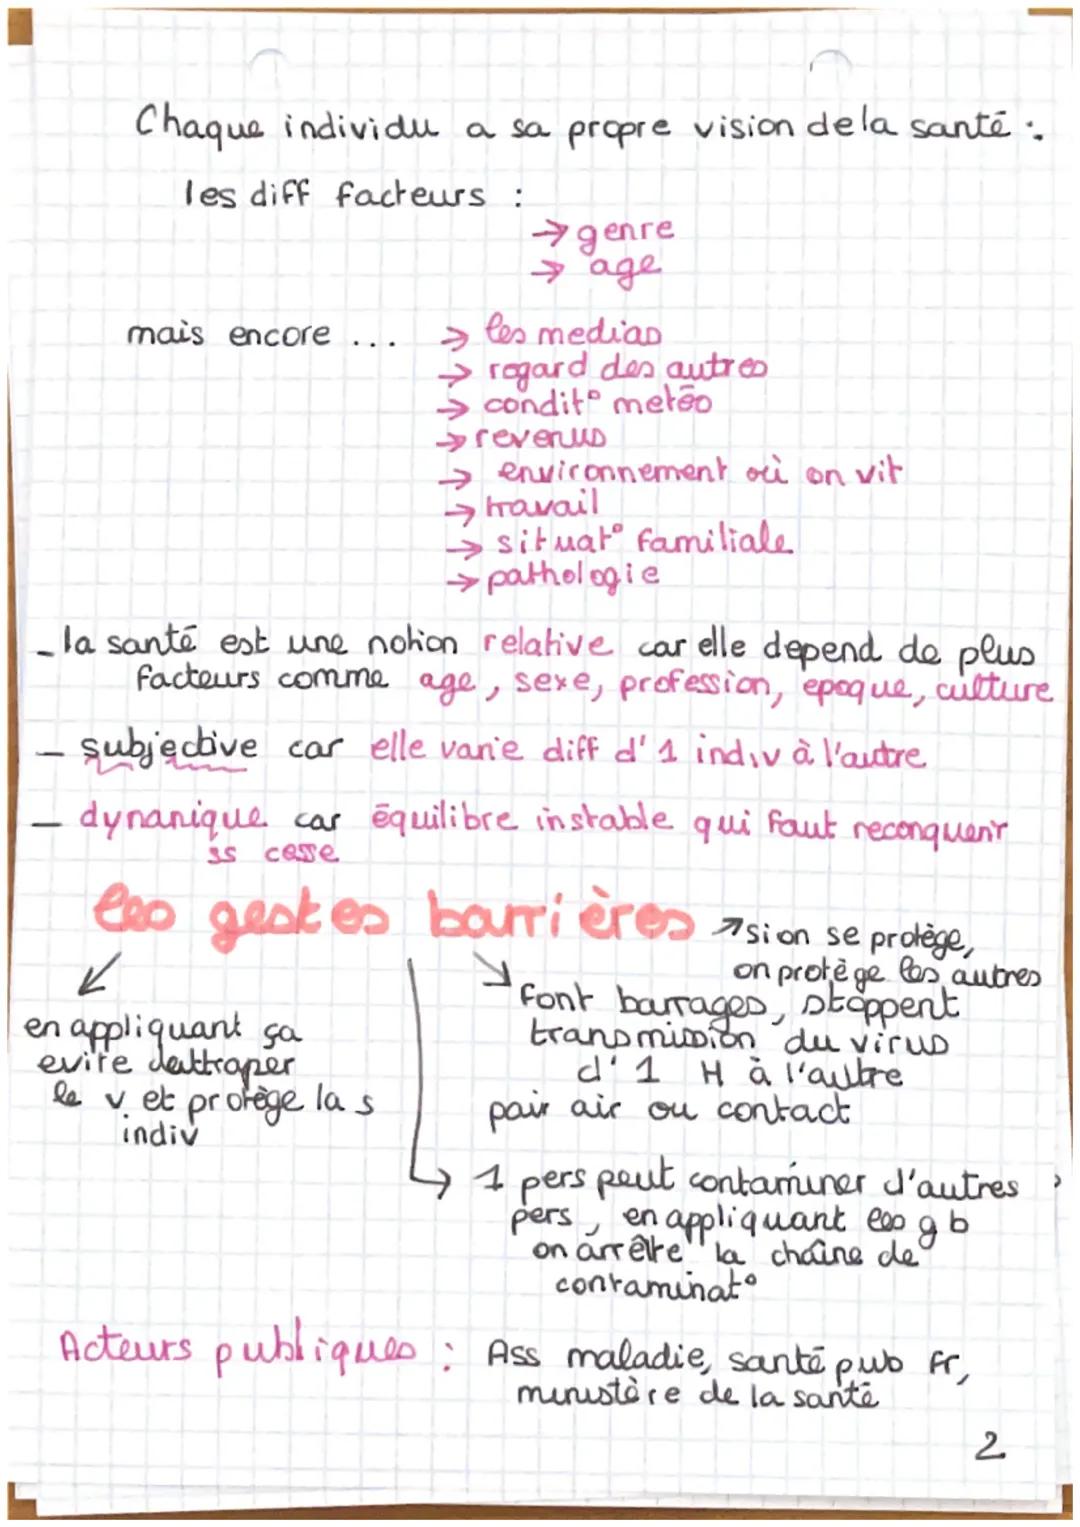 Chaque individu a sa propre vision de la santé :
les diff facteurs :
→ genre
→ age
mais encore ... → les medias
→ regard des autres
→ condit° metéo
→ revenus
→ environnement où on vit
→ travail
→ situat° familiale
→ pathologie
_ la santé est une notion relative car elle depend de plus
facteurs comme age, sexe, profession, epoque, culture
_ subjective car elle varie diff d'1 indiv à l'autre
_ dynanique car équilibre instable qui faut reconquerir
ss cesse
les gestes barrières
↗ si on se protège,
on protège les autres
en appliquant ça
evite dattraper
le v. et protège la s
indiv
font barrages, stoppent
transmission du virus
d'1 H à l'autre
pair air ou contact
→ 1 pers peut contaminer d'autres
pers, en appliquant les gb
on arrête la chaîne de
contaminat°
Acteurs publiques : Ass maladie, santé pub fr,
ministère de la santé
2